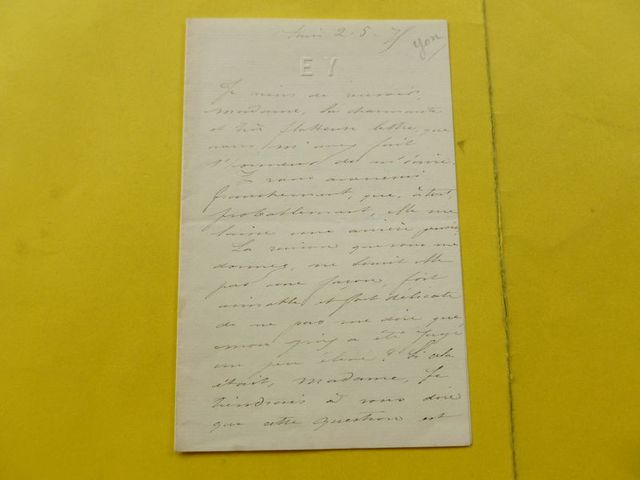 2 - 5 - 75
yon
EY
Je viens de recevoir,
Madame, la charmante
et très flatteuse lettre, que
vous m'avez fait
l'honneur de m'écrire.
Je vous avouerai
franchement, que, à tort,
probablement, elle me
laisse une arrière pensée.
La raison que vous me
donnez, ne serait elle
pas une façon, fort
aimable et fort délicate
de ne pas me dire que
mon prix a été jugé
un peu élevé ? Si cela
était, Madame, je
tiendrais à vous dire
que cette question est